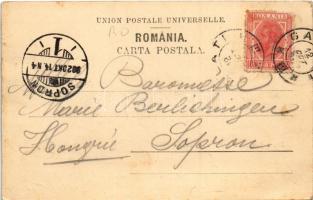 UNION POSTALE UNIVERSELLE.
RO
ROMÂNIA.
CARTA POSTALA.
ROMANIA
SOPRON
902 OKT 14 N 4
GA
Baronesse
Marie Berlichingen
Hongrie Sopron